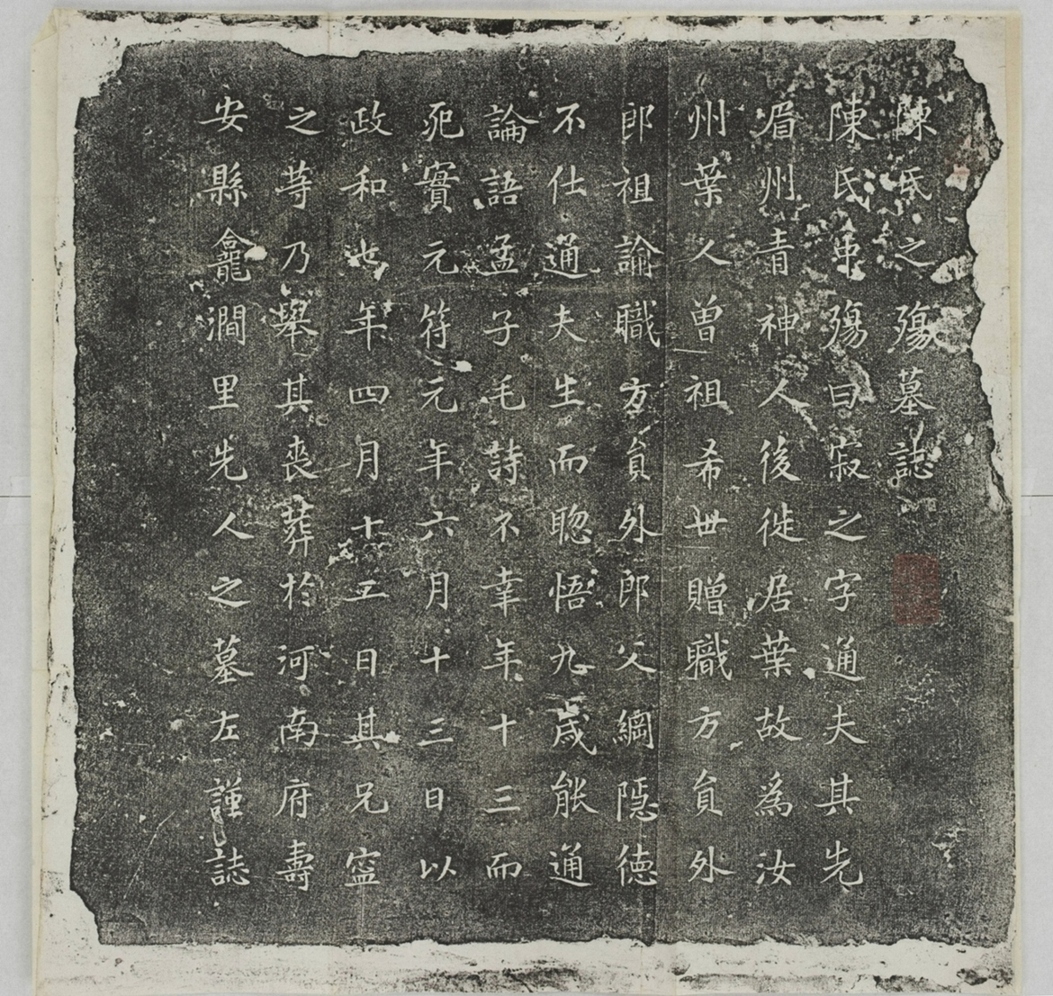 陳氏之殤墓誌
陳氏中殤曰寂之字通夫其先
眉州青神人後徙居葉故為汝
州葉人曾祖希世贈職方員外
郎祖諭職方員外郎父綱隱德
不仕通夫生而聰悟九歲能通
論語孟子毛詩不幸年十三而
死實元符元年六月十三日以
政和七年四月十五日其兄寍
之等乃舉其喪葬於河南府壽
安縣龕澗里先人之墓左謹誌